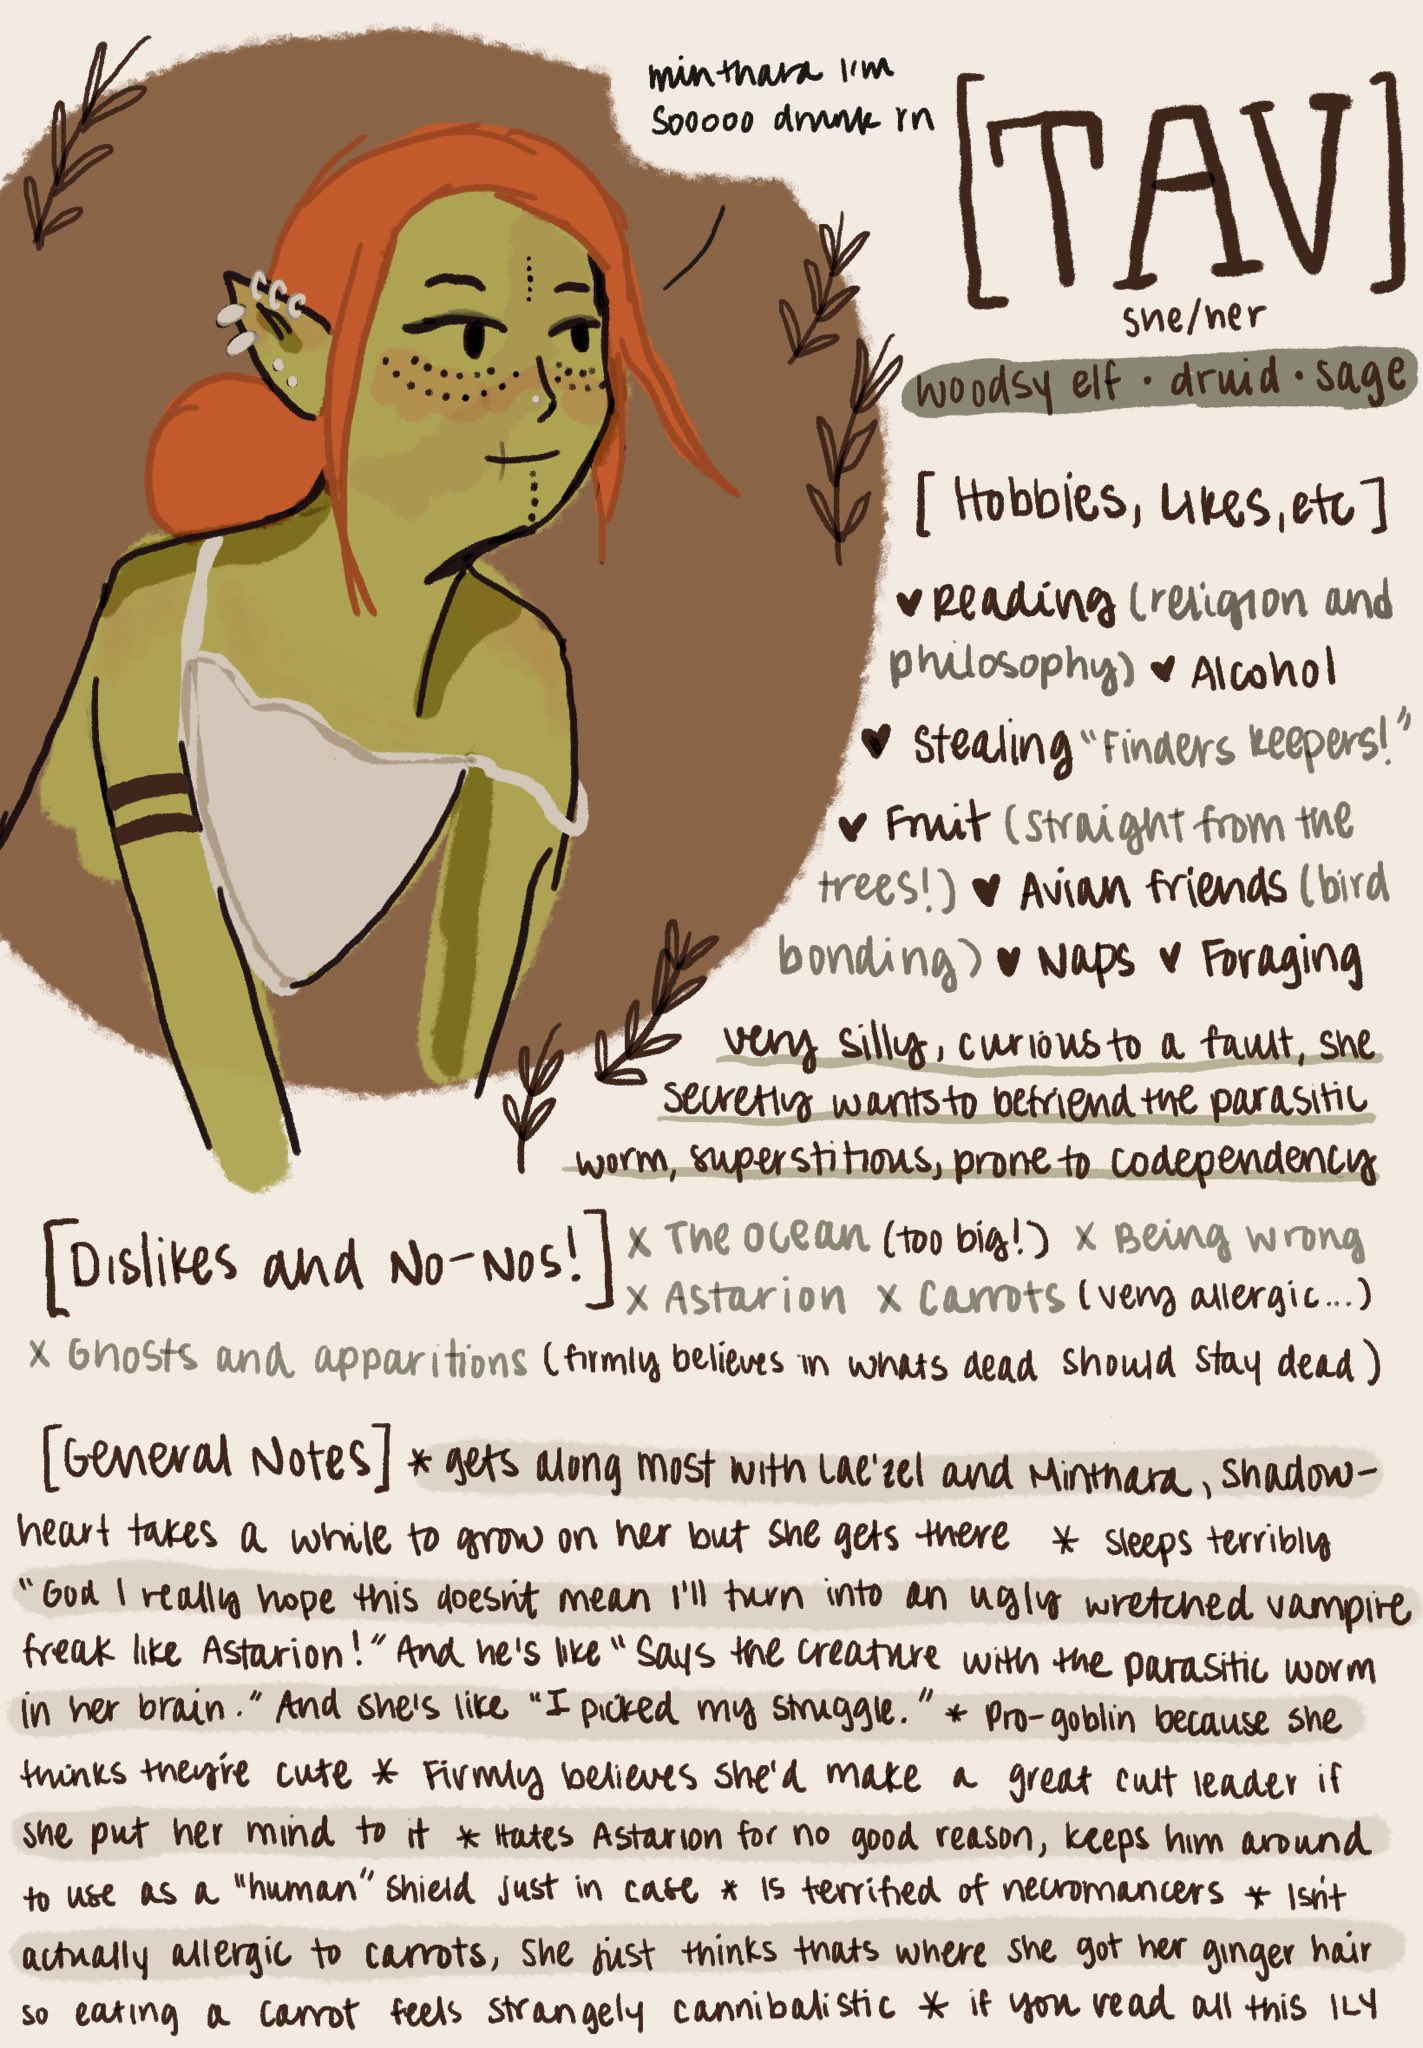 minthara i'm
sooooo drunk rn
[TAV]
she/her
woodsy elf · druid · sage
[Hobbies, likes, etc]
♥ Reading (religion and
philosophy) ♥ Alcohol
♥ Stealing "Finders keepers!"
♥ Fruit (straight from the
trees!) ♥ Avian friends (bird
bonding) ♥ Naps ♥ Foraging
very silly, curious to a fault, she
secretly wants to befriend the parasitic
worm, superstitious, prone to codependency
[Dislikes and No-Nos!] x The ocean (too big!) x Being wrong
x Astarion x Carrots (very allergic...)
x Ghosts and apparitions (firmly believes in whats dead should stay dead)
[General Notes] * gets along most with Lae'zel and Minthara, Shadow-
heart takes a while to grow on her but she gets there * sleeps terribly
"God I really hope this doesn't mean I'll turn into an ugly wretched vampire
freak like Astarion!" And he's like "Says the creature with the parasitic worm
in her brain." And she's like "I picked my struggle." * Pro-goblin because she
thinks they're cute * Firmly believes she'd make a great cult leader if
she put her mind to it * Hates Astarion for no good reason, keeps him around
to use as a "human" shield just in case * Is terrified of necromancers * Isn't
actually allergic to carrots, she just thinks thats where she got her ginger hair
so eating a carrot feels strangely cannibalistic * if you read all this ILY